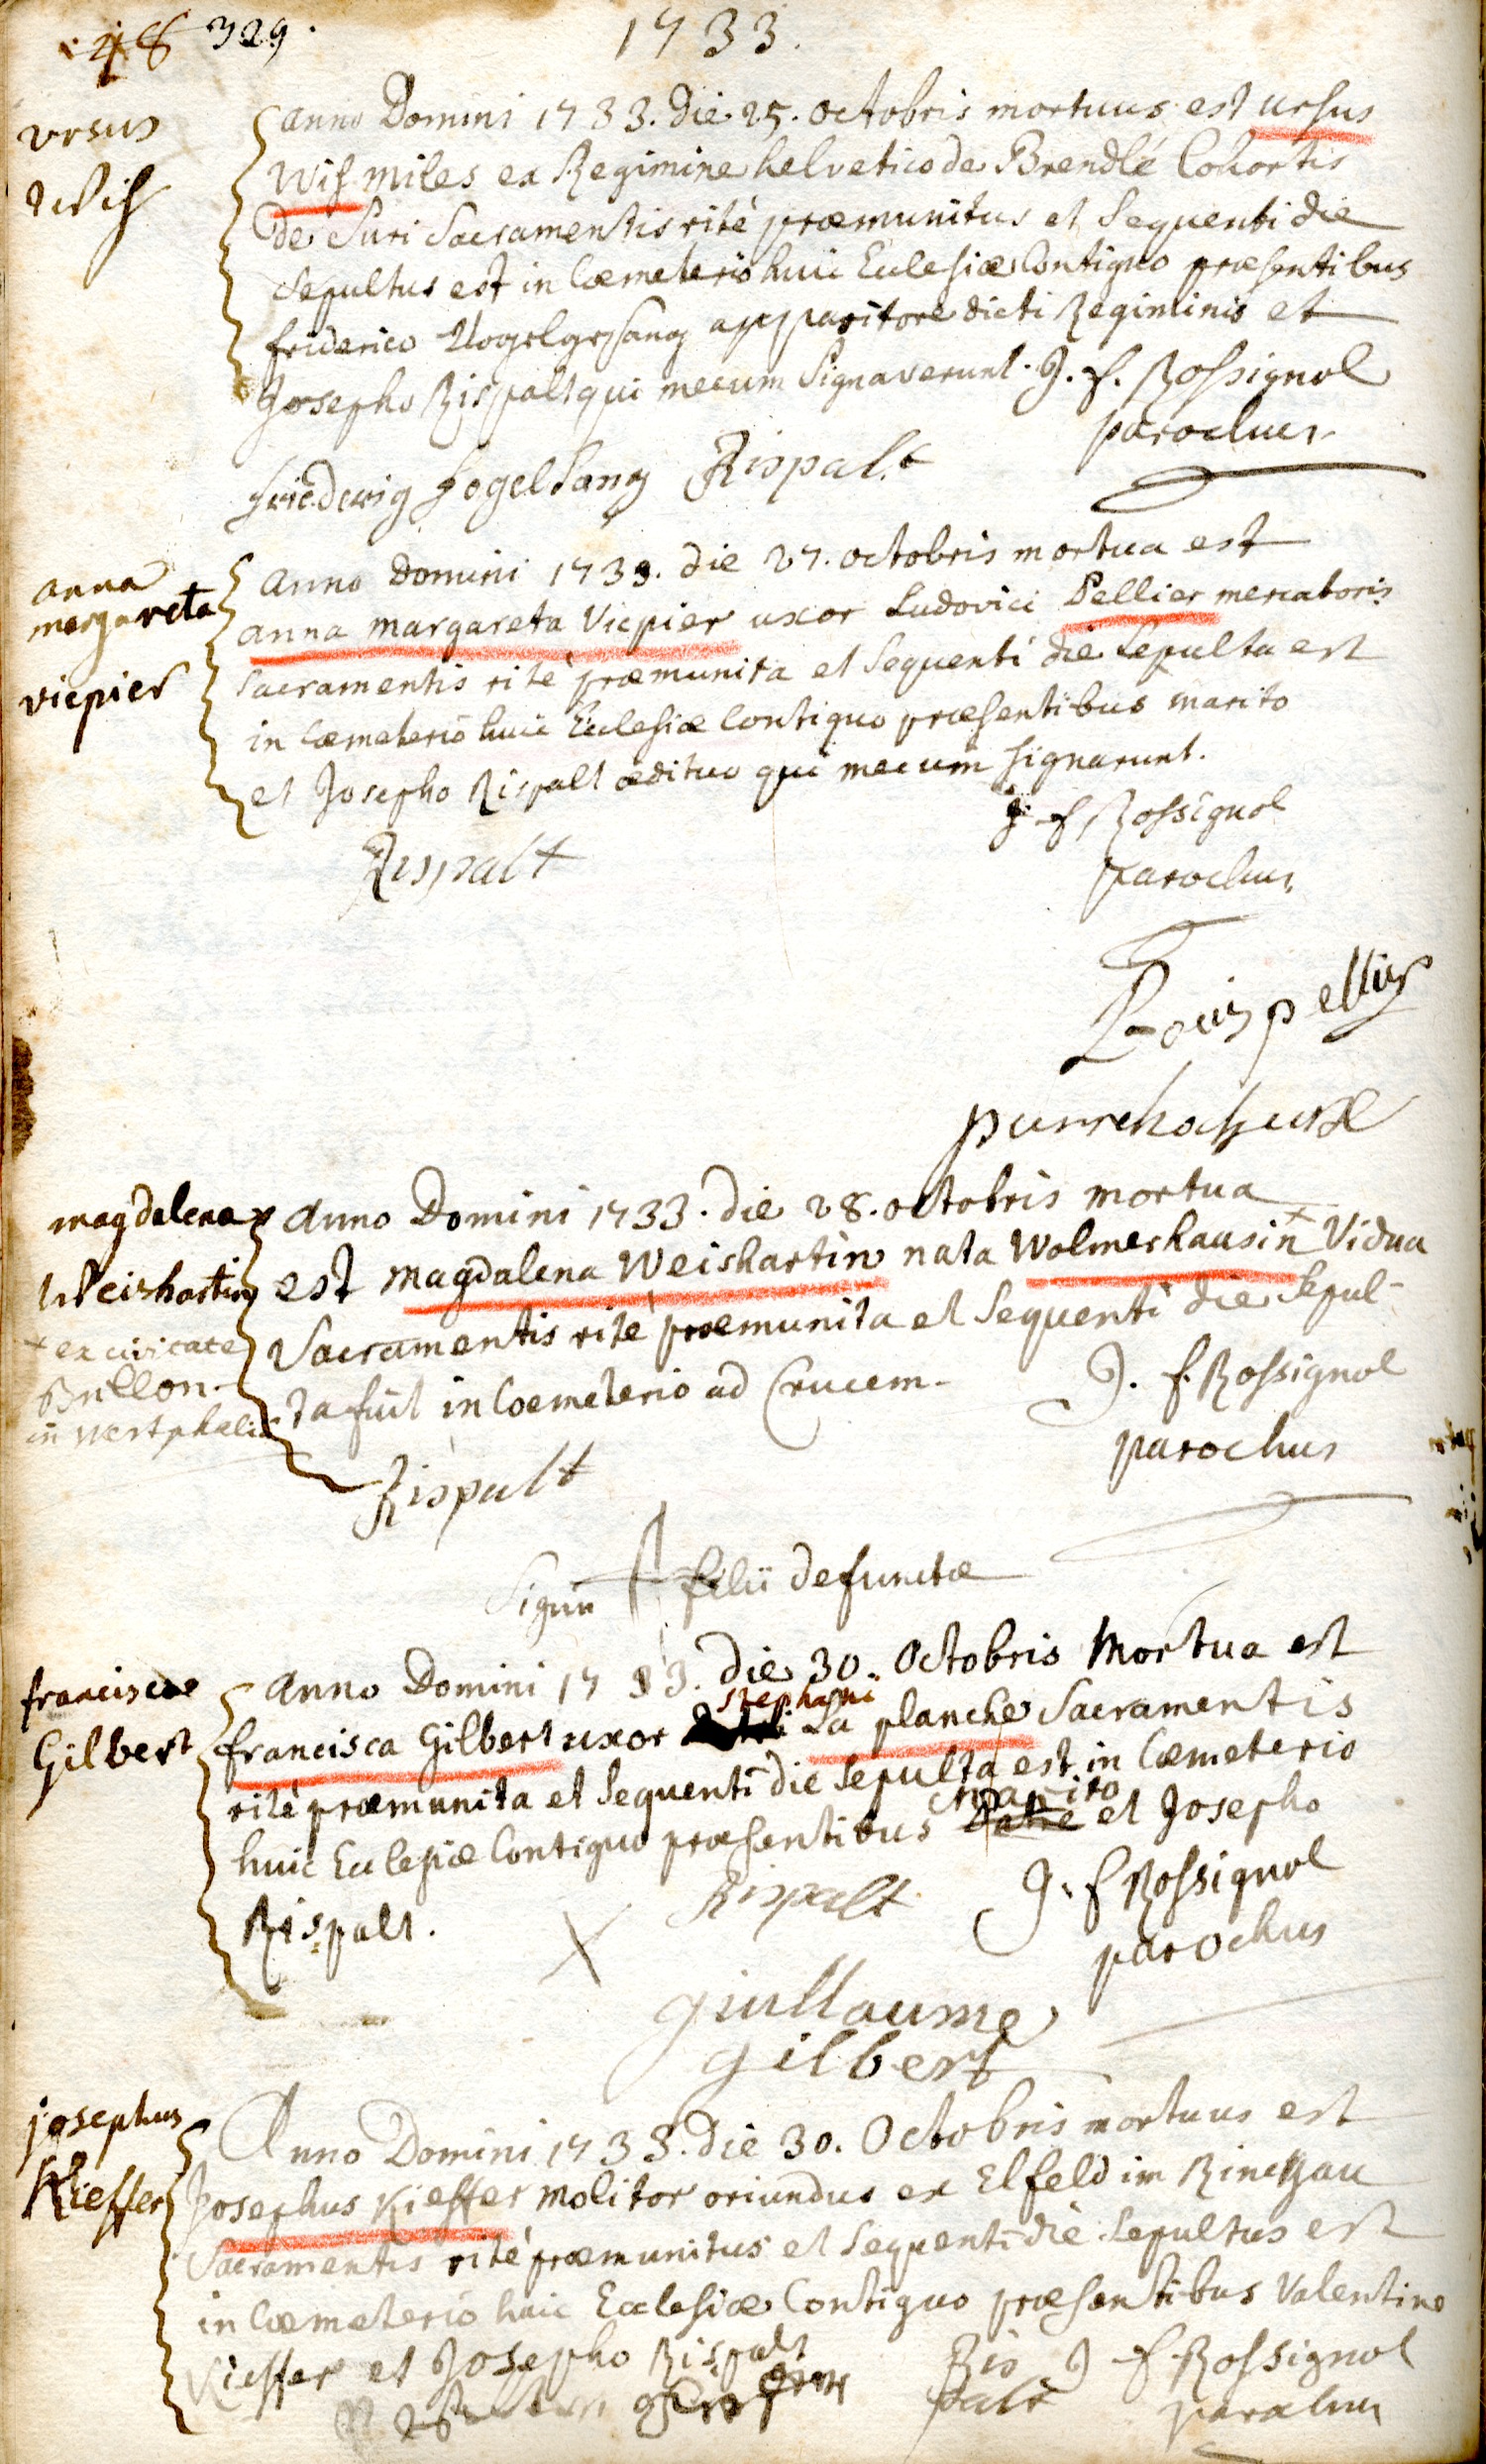 48 329.
1733.
ursus
Wis
Anno Domini 1733. Die 25. octobris mortuus est ursus
Wis miles ex Regimine helvetico de Brendlé Cohortis
de Suri Sacramentis rité præmunitus et Sequenti die
Sepultus est in Cœmeterio huic Ecclesiæ Contiguo præsentibus
friderico Vogelgesang apparitore dicti Regiminis et
Josepho Rispalt qui mecum Signaverunt. J. f. Rossignol
parochus
friederig fogelsang Rispalt
anna
margareta
viepier
Anno Domini 1733. die 27. octobris mortua est
anna margareta Viepier uxor Ludovici Pellier mercatoris
Sacramentis rité præmunita et Sequenti die Sepulta est
in Cœmeterio huic Ecclesiæ Contiguo præsentibus marito
et Josepho Rispalt ædituo qui mecum signarunt.
J. f. Rossignol
Rispalt
parochus
Louis pellier
magdalena
Weishartin
+ ex civitate
Brillon
in Westphalia
Anno Domini 1733. die 28. octobris mortua
est magdalena Weishartin nata Wolmerhausin + Vidua
Sacramentis rité præmunita et Sequenti die Sepul-
ta fuit in Cœmeterio ad Crucem. J. f. Rossignol
parochus
Rispalt
Signu + filii defunctæ
francisca
Gilbert
Anno Domini 1733. die 30. Octobris Mortua est
stephani
francisca Gilbert uxor La planche Sacramentis
rité præmunita et Sequenti die Sepulta est in Cœmeterio
marito
huic Ecclesiæ Contiguo præsentibus Patre et Josepho
Rispalt. X Rispalt J. f Rossignol
parochus
guillaume
gilbert
josephus
Kieffer
Anno Domini 1733. die 30. Octobris mortuus est
Josephus Kieffer molitor oriundus ex Elfeld im Rinckgau
Sacramentis rité præmunitus et Sequenti die Sepultus est
in Cœmeterio huic Ecclesiæ Contiguo præsentibus Valentino
Kieffer et Josepho Rispalt
Ris
palt
J f Rossignol
parochus